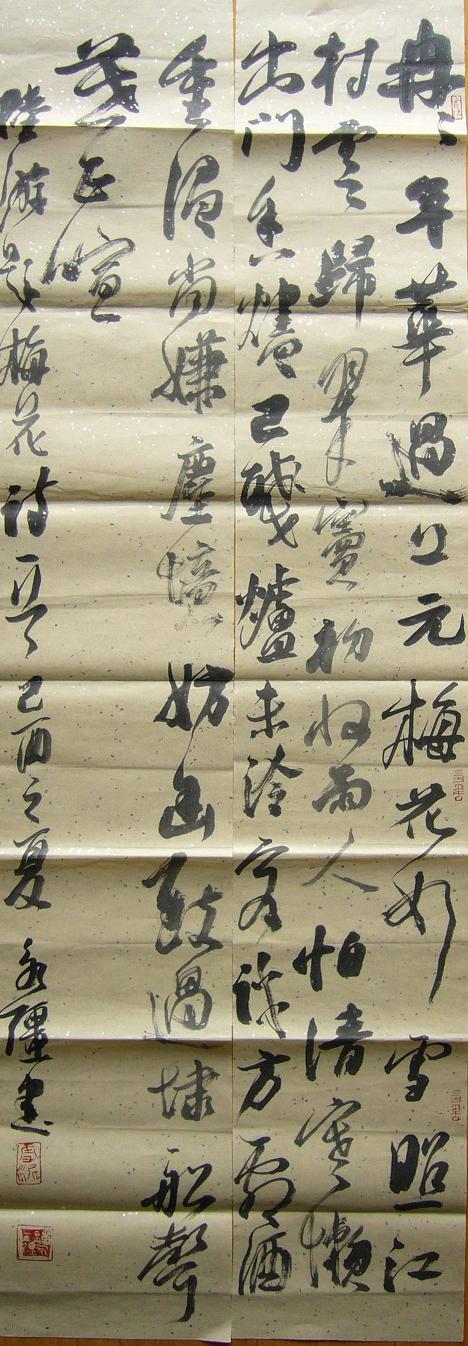 冉冉年華過上元梅花如雪照江
村雲歸翠竇初收雨人怕清寒懶
出門香燼已殘爐未冷客談方劇酒
重温尚嫌塵境妨幽致過埭船聲
正喧
陸游題梅花詩一首己酉之夏永疆書